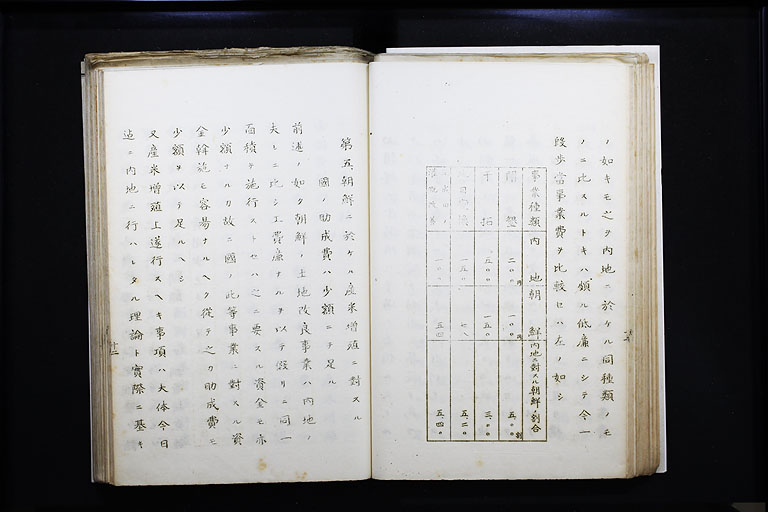 ノ如キモ之ヲ內地ニ於ケル同種類ノモ
ノニ比スルトキハ頗ル低廉ニシテ今一
段步當事業費ヲ比較セハ左ノ如シ
事業種類 內地 朝鮮 內地ニ對スル朝鮮ノ割合
開墾 二〇〇円 一〇〇円 五.〇〇割
干拓 五〇〇 一五〇 三.〇〇
一五〇 七八 五.二〇
一〇〇 五四 五.四〇
第五、朝鮮ニ於ケル產米增殖ニ對スル
國ノ助成費ハ少額ニテ足ル
前述ノ如ク朝鮮ノ土地改良事業ハ內地ノ
夫レニ比シ工費廉ナルヲ以テ假リニ同一
面積ヲ施行ストセハ之ニ要スル資金モ亦
少額ナルカ故ニ國ノ此等事業ニ對スル資
金斡施モ容易ナルヘク從テ之カ助成費モ
少額ヲ以テ足ルヘシ
又產米增殖上遂行スヘキ事項ハ大体今日
迄ニ內地ニ行ハレタル理論ト實際ニ基キ